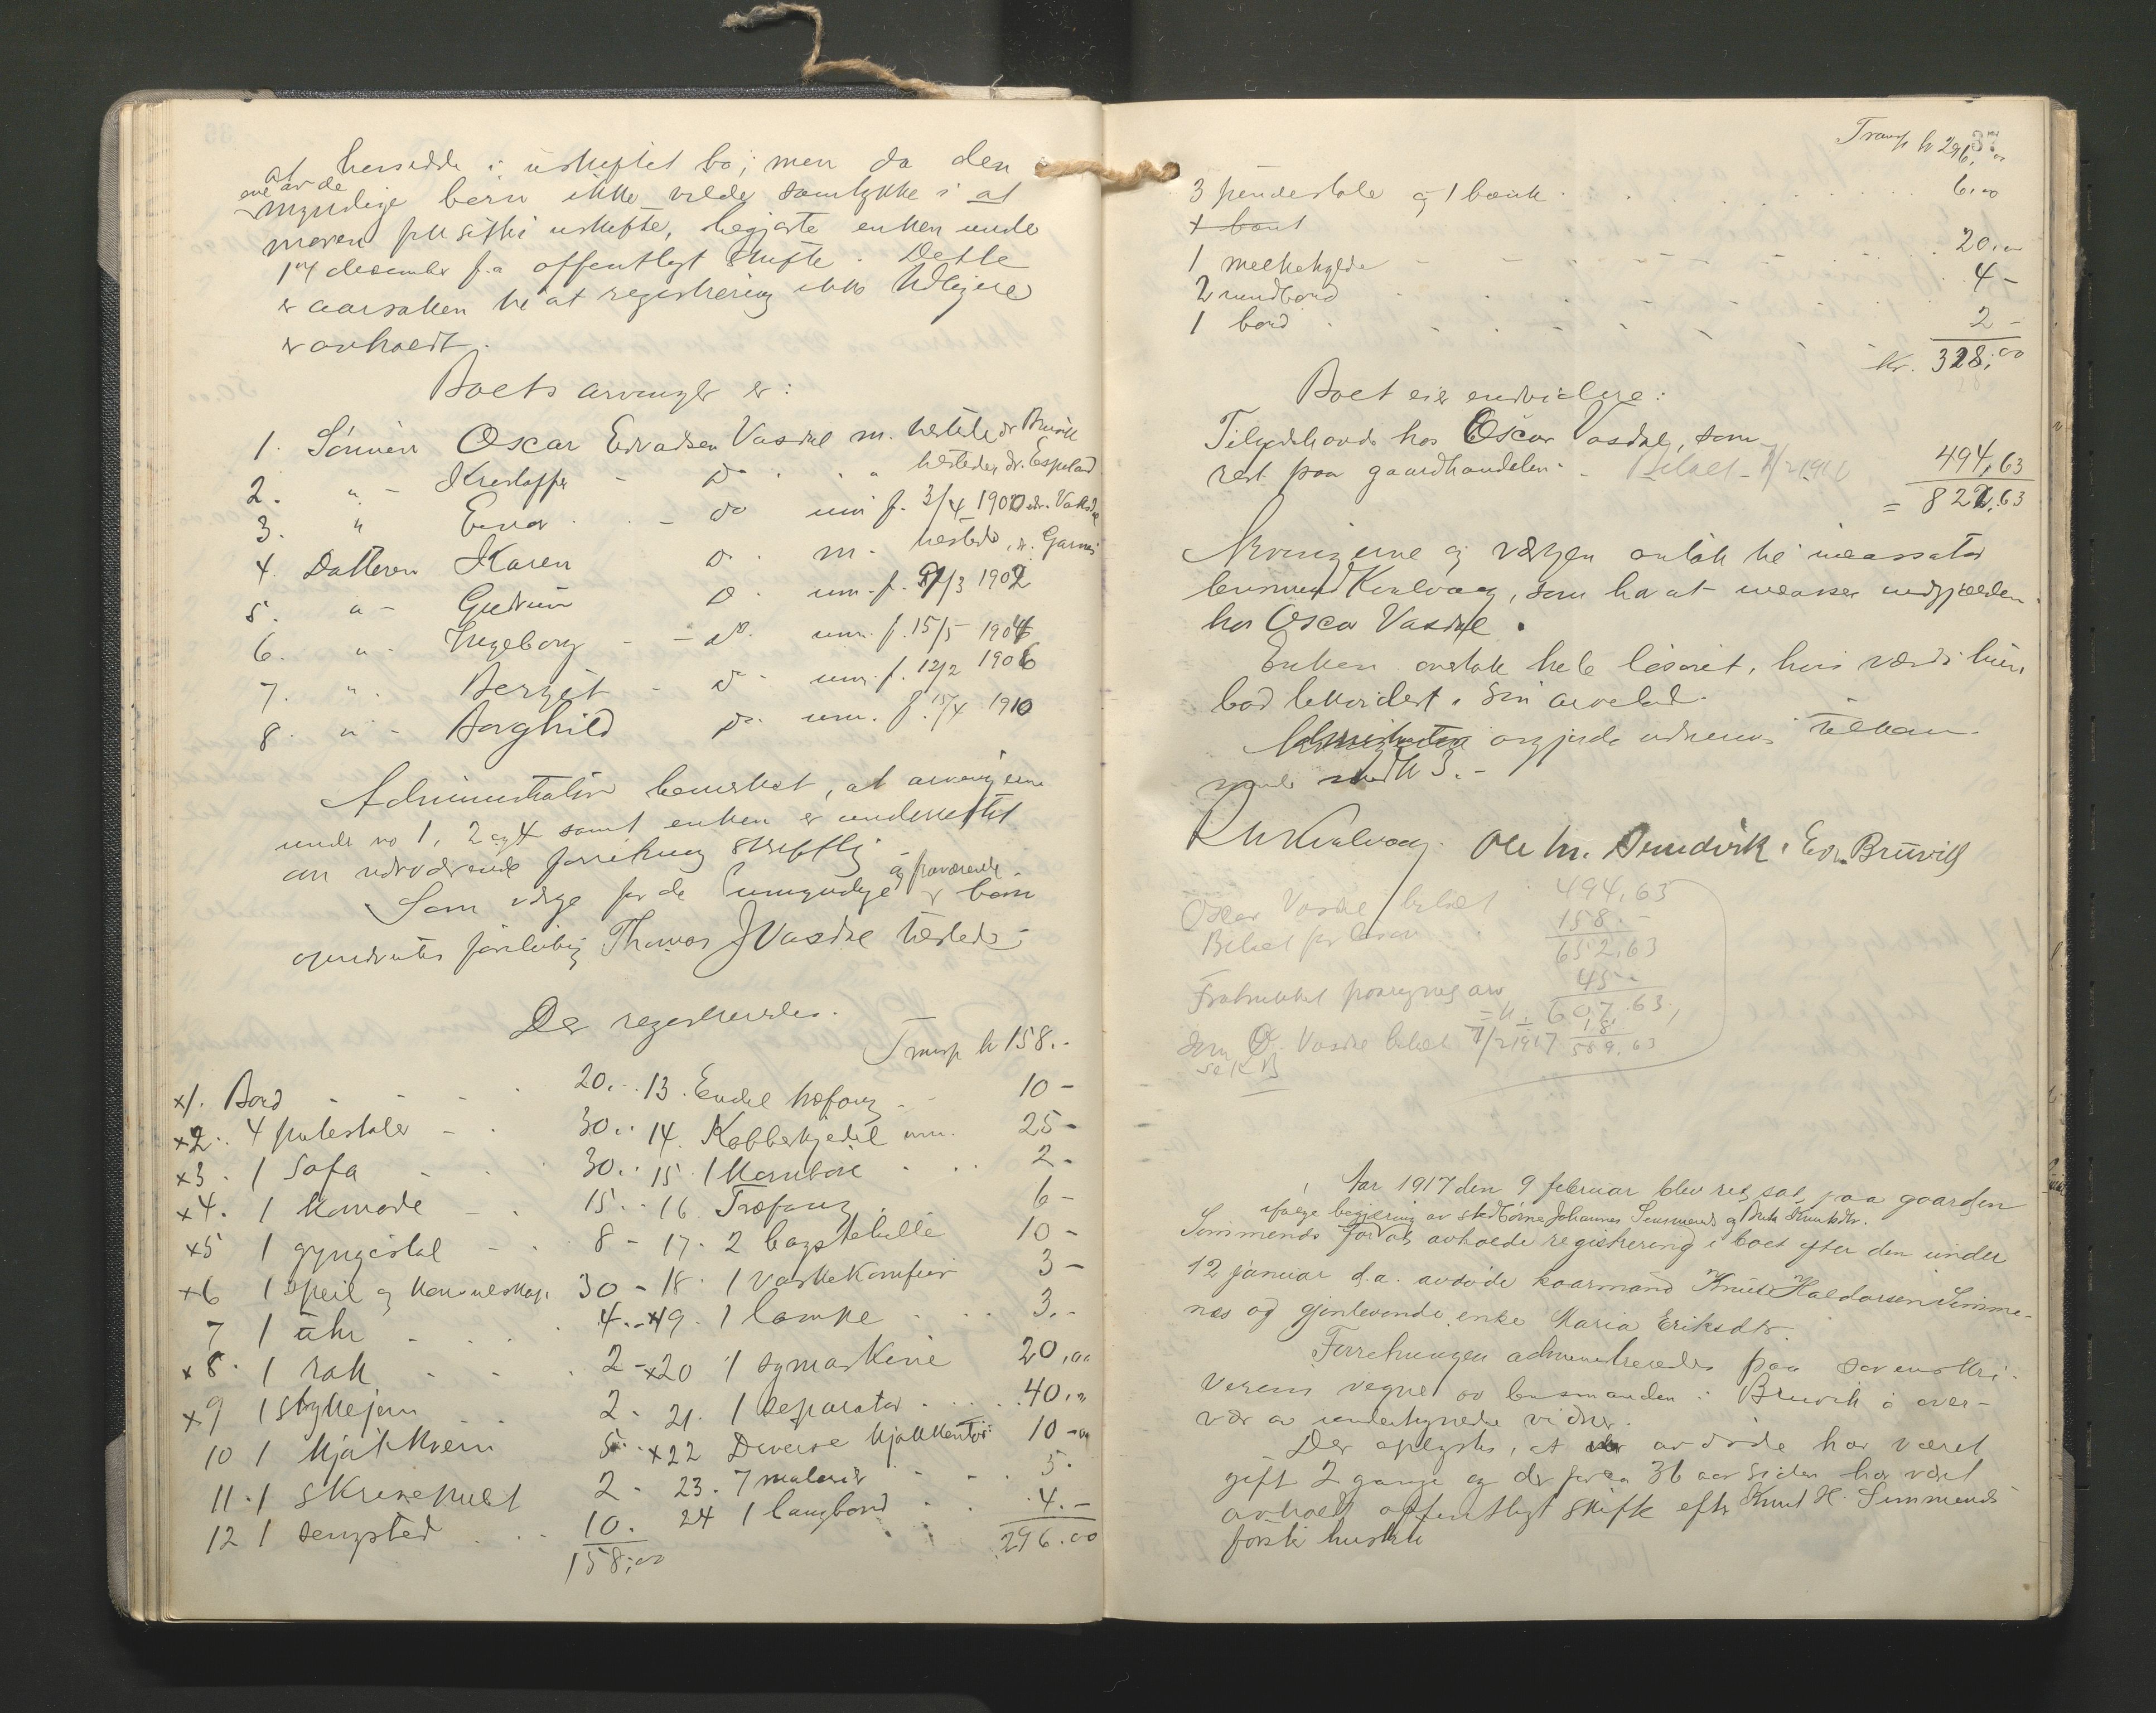 at hensidde i uskiftet bo; men da den
ene av de
myndige børn ikke vilde samtykke i at
moren fik sitte i uskifte, begjærte enken under
14 desember f.a offentligt skifte. Dette
er aarsaken til at registrering ikke tidligere
er avholdt.
Boets arvinger er:
1. Sønnen Oscar Edvardsen Vasdal m. hersteds
2. " - Kristoffer - Do " hersteder, dr. Espeland
3. " Einar - do um f. 3/4 1900 adr. Vaksdal
4. Datteren Karen Do. m. hersteds, dr. Garnes
5. " - Gudrun Do. um. f. 21/3 1902
6. " - Ingeborg - - do. um. f. 15/5 1904
7. " - Bergit - do - um. f. 12/2 1906
8. " - Borghild do. um. f. 15/4 1910
Administrator bemerket, at arvingerne
under no 1, 2 og 4 samt enken er underrettet
om nærværende forretning skriftlig
og fraværende
Som verge for de umyndige børn
opnævntes foreløbig Thomas J Vasdal hersteds.
Der registreredes.
Transp kr 158.-
x1. Bord - - 20.- 13. Endel træfang - 10 -
x2. 4 putestoler - 30.- 14. Kobberkjedel 25 -
x3. 1 Sofa 30.- 15 1 2 -
x4. 1 Komode 15.- 16 Træfang 6 -
x5 1 gyngestol 8 - 17. 2 10 -
x6 1 speil og 30 - 18. 1 vaskekomfur 3 -
7 1 uhr 4.- x19. 1 lampe 3.-
x8. 1 rok 2 - x20 1 symaskine 20,00
x9 1 strykejern 2 - 21. 1 separator 40,00
10 1 kjøtkvern 5.- x22 Diverse kjøkkentøi 10 -
11. 1 skrivepult 2 - 23. 7 malerier 5 -
12 1 sengsted 10. 24 1 langbord 4.-
158,00 296.00
Transp kr 296,00
3 pindestole og 1 bænk 6.00
1 bord
1 melkehylde 20.00
2 rundbord 4 -
1 bord 2 -
Kr. 328,00
Boet eier endvidere:
Tilgodehavende hos Oscar Vasdal, som
rest paa gaardhandelen - Betalt 7/2 1917 494,63
= 822,63
Arvingerne og vergen antok til incassator
lensmand Kvalvaag, som har at incassere
hos Oscar Vasdal.
Enken overtok hele løsøret, hvis værdi hun
bad bekvidert i sin arvelod.
Administrator avgjorde
Kvalvaag. Ole M. Sundvik. Edv. Bruvik
Oscar Vasdal betalt 494,63
Betalt for løsøre 158.-
652,63
Fratrukket 45 -
= kr. 607.63,
18,
som O. Vasdal betalt 7/2 1917 589,63
Aar 1917 den 9 februar blev ret sat paa gaarden
ifølge begjæring av stedbørne Johannes Simmenes og
Simmenes for at avholde registrering i boet efter den under
12 januar d.a. avdøde kaarmand Knut Haldorsen Simme-
nes og gjenlevende enke Maria Eriksdtr.
Forretningen administreredes paa sorenskri-
verens vegne av lensmanden i Bruvik i over-
vær av undertegnede vidner.
Der oplystes, at avdøde har været
gift 2 gange og der for ca 36 aar siden har været
avholdt offentligt skifte efter Knut H. Simmenes
første hustru